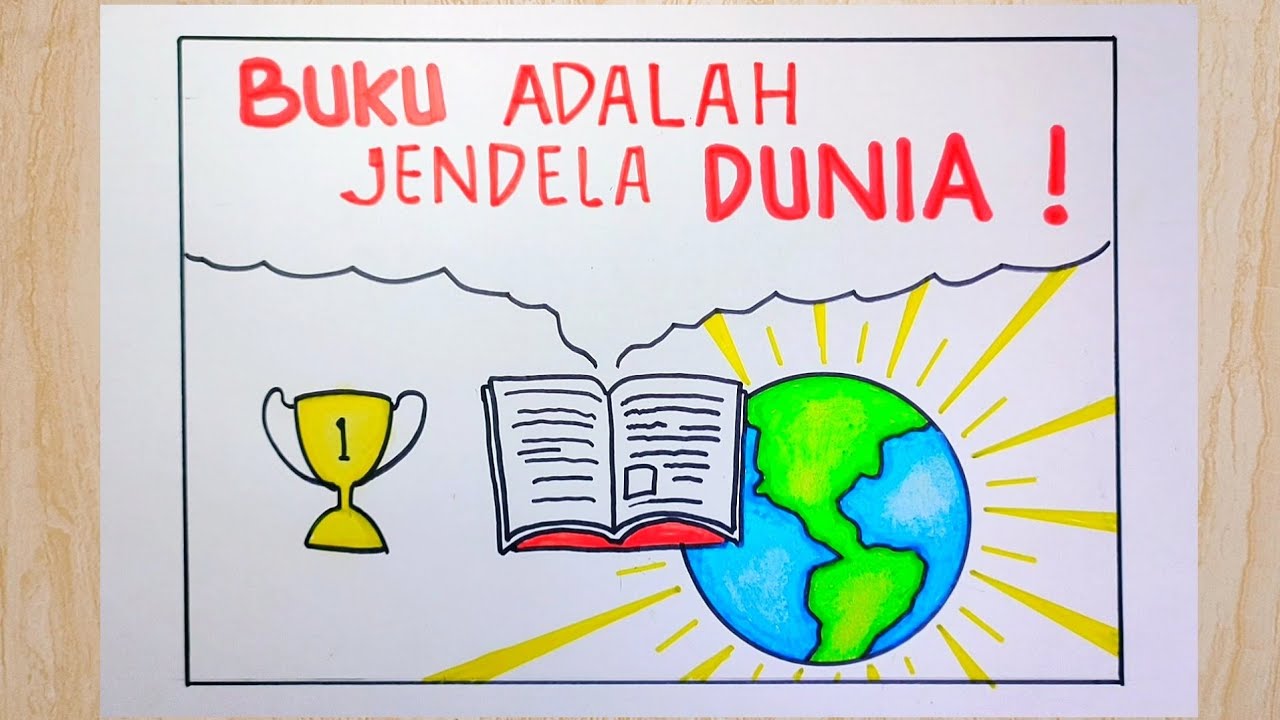 BUKU ADALAH
JENDELA DUNIA !
1